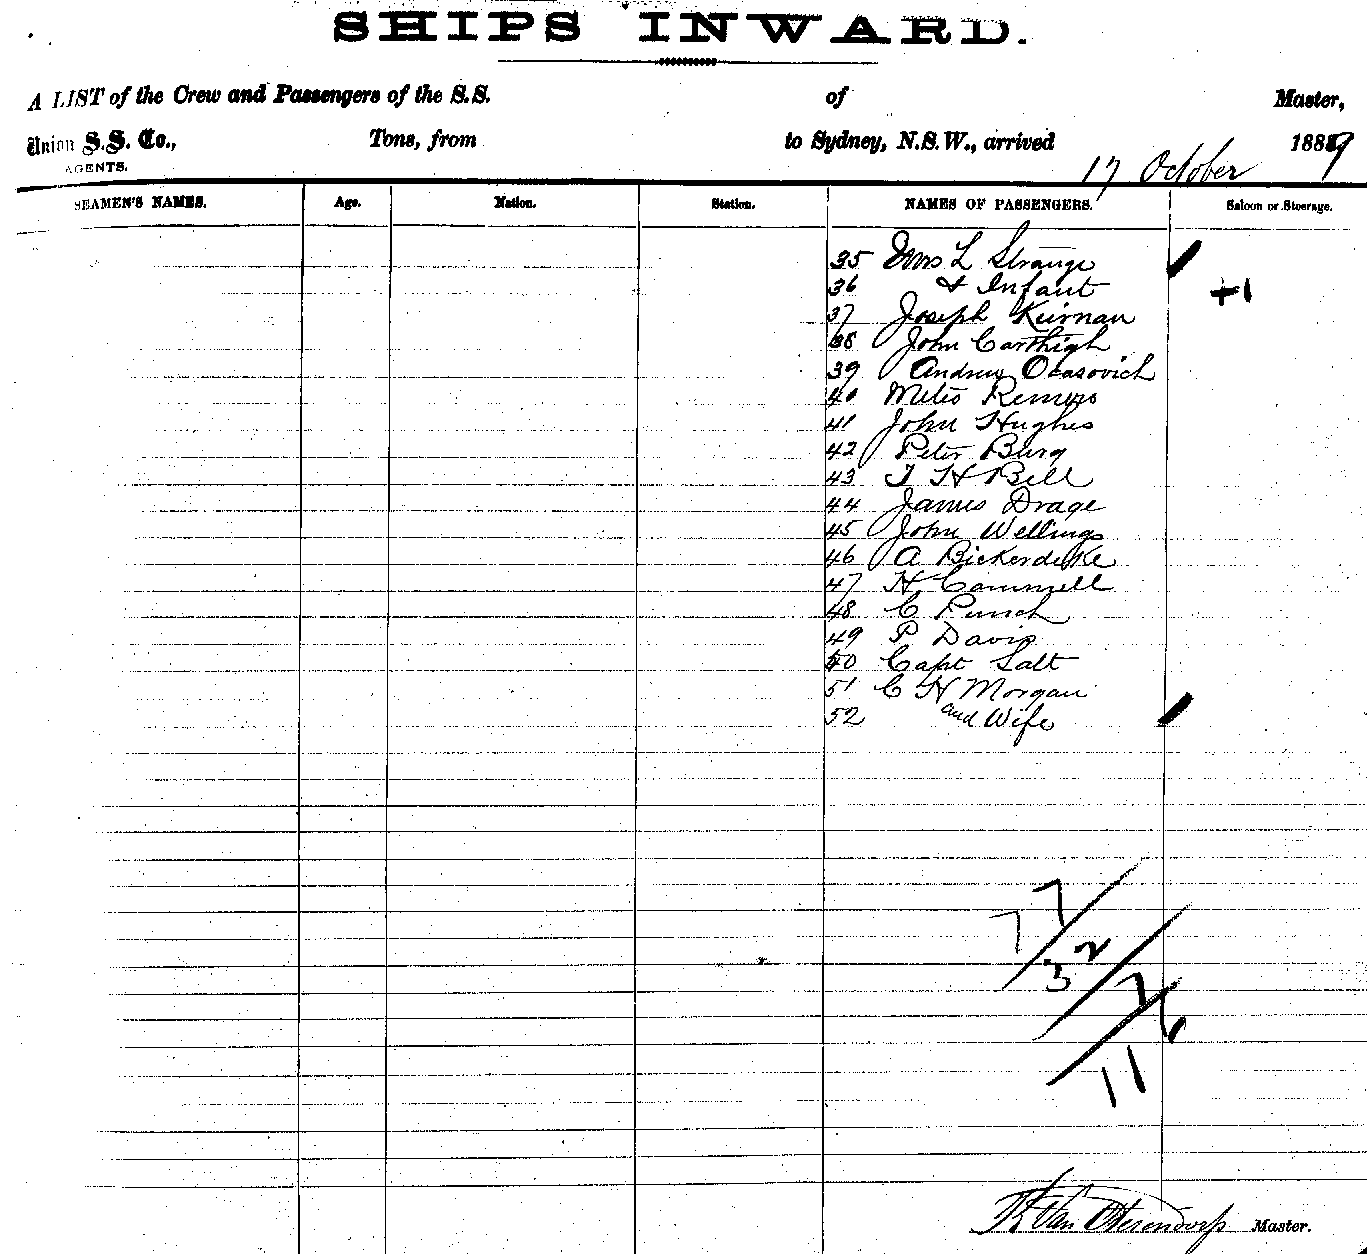 SHIPS INWARD.
A LIST of the Crew and Passengers of the S.S. of Master,
Union S.S. Co., Tons, from to Sydney, N.S.W., arrived 17 October 1889
AGENTS.
SEAMEN'S NAMES. Age. Nation. Station. NAMES OF PASSENGERS. Saloon or Steerage.
35 Mrs L Strange
36 & Infant +1
37 Joseph Keirnan
38 John Carthigh
39 Andrew Ocasovich
40
41 John Hughes
42 Peter Burg
43 T H Bell
44 James Drage
45 John Wellings
46 A Bickerdike
47 H Cammell
48 C Punch
49 P Davis
50 Capt Salt
51 C H Morgan
52 and Wife
7 7
32
76
11
Van Master.